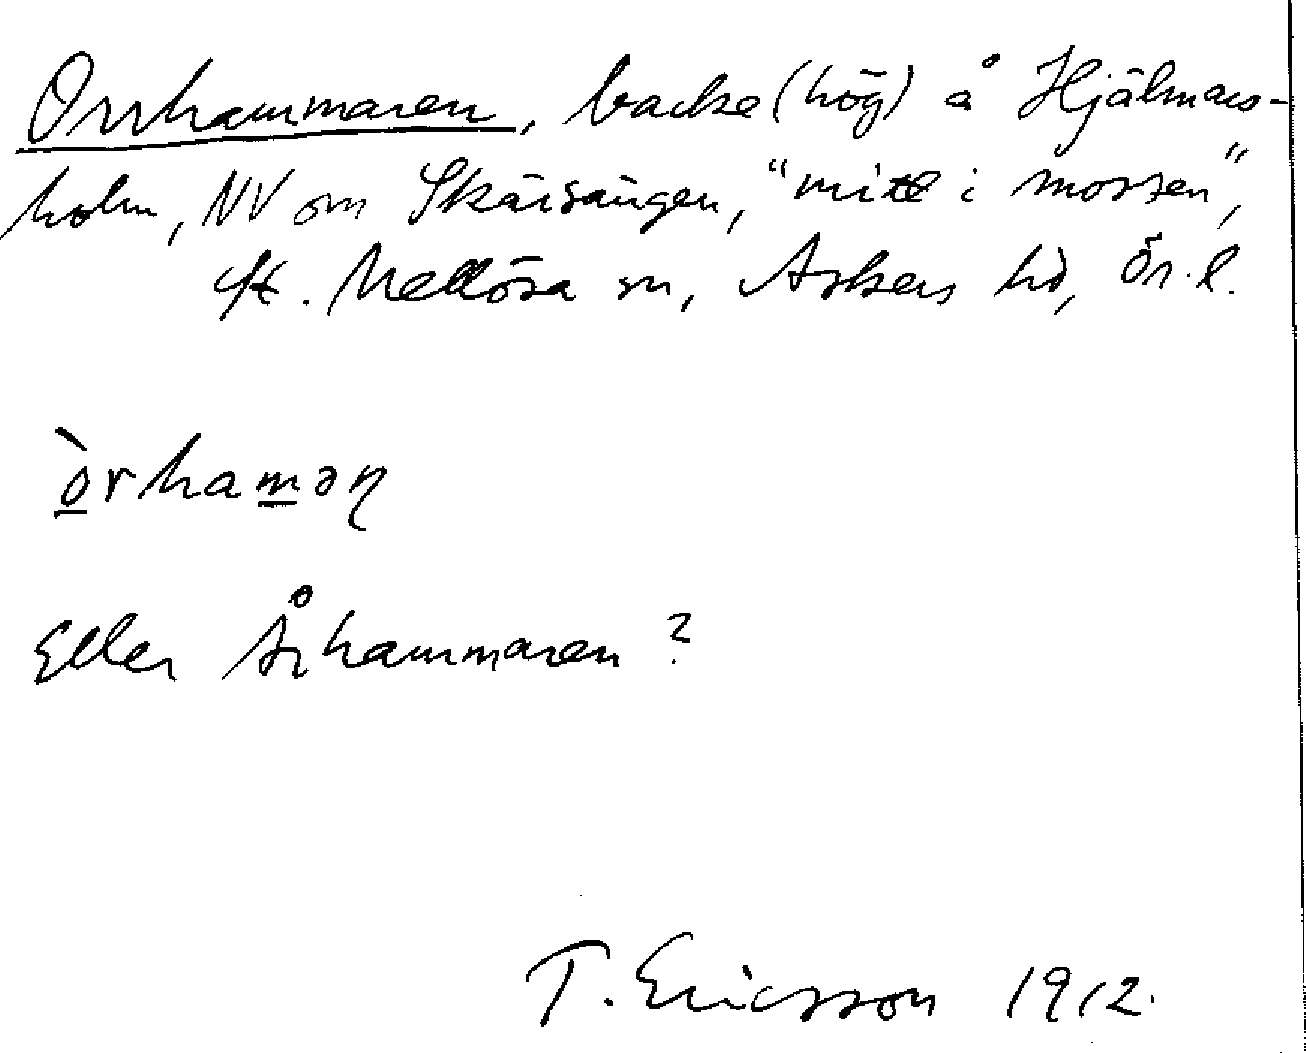 Orrhammaren, backe (hög) å Hjälmars-
holm, NV om Skärsängen, "mitt i mossen",
St. Mellösa sn, Askers hd, Ör. l.
òrhaməη
Eller Århammaren?
T. Ericsson 1912.